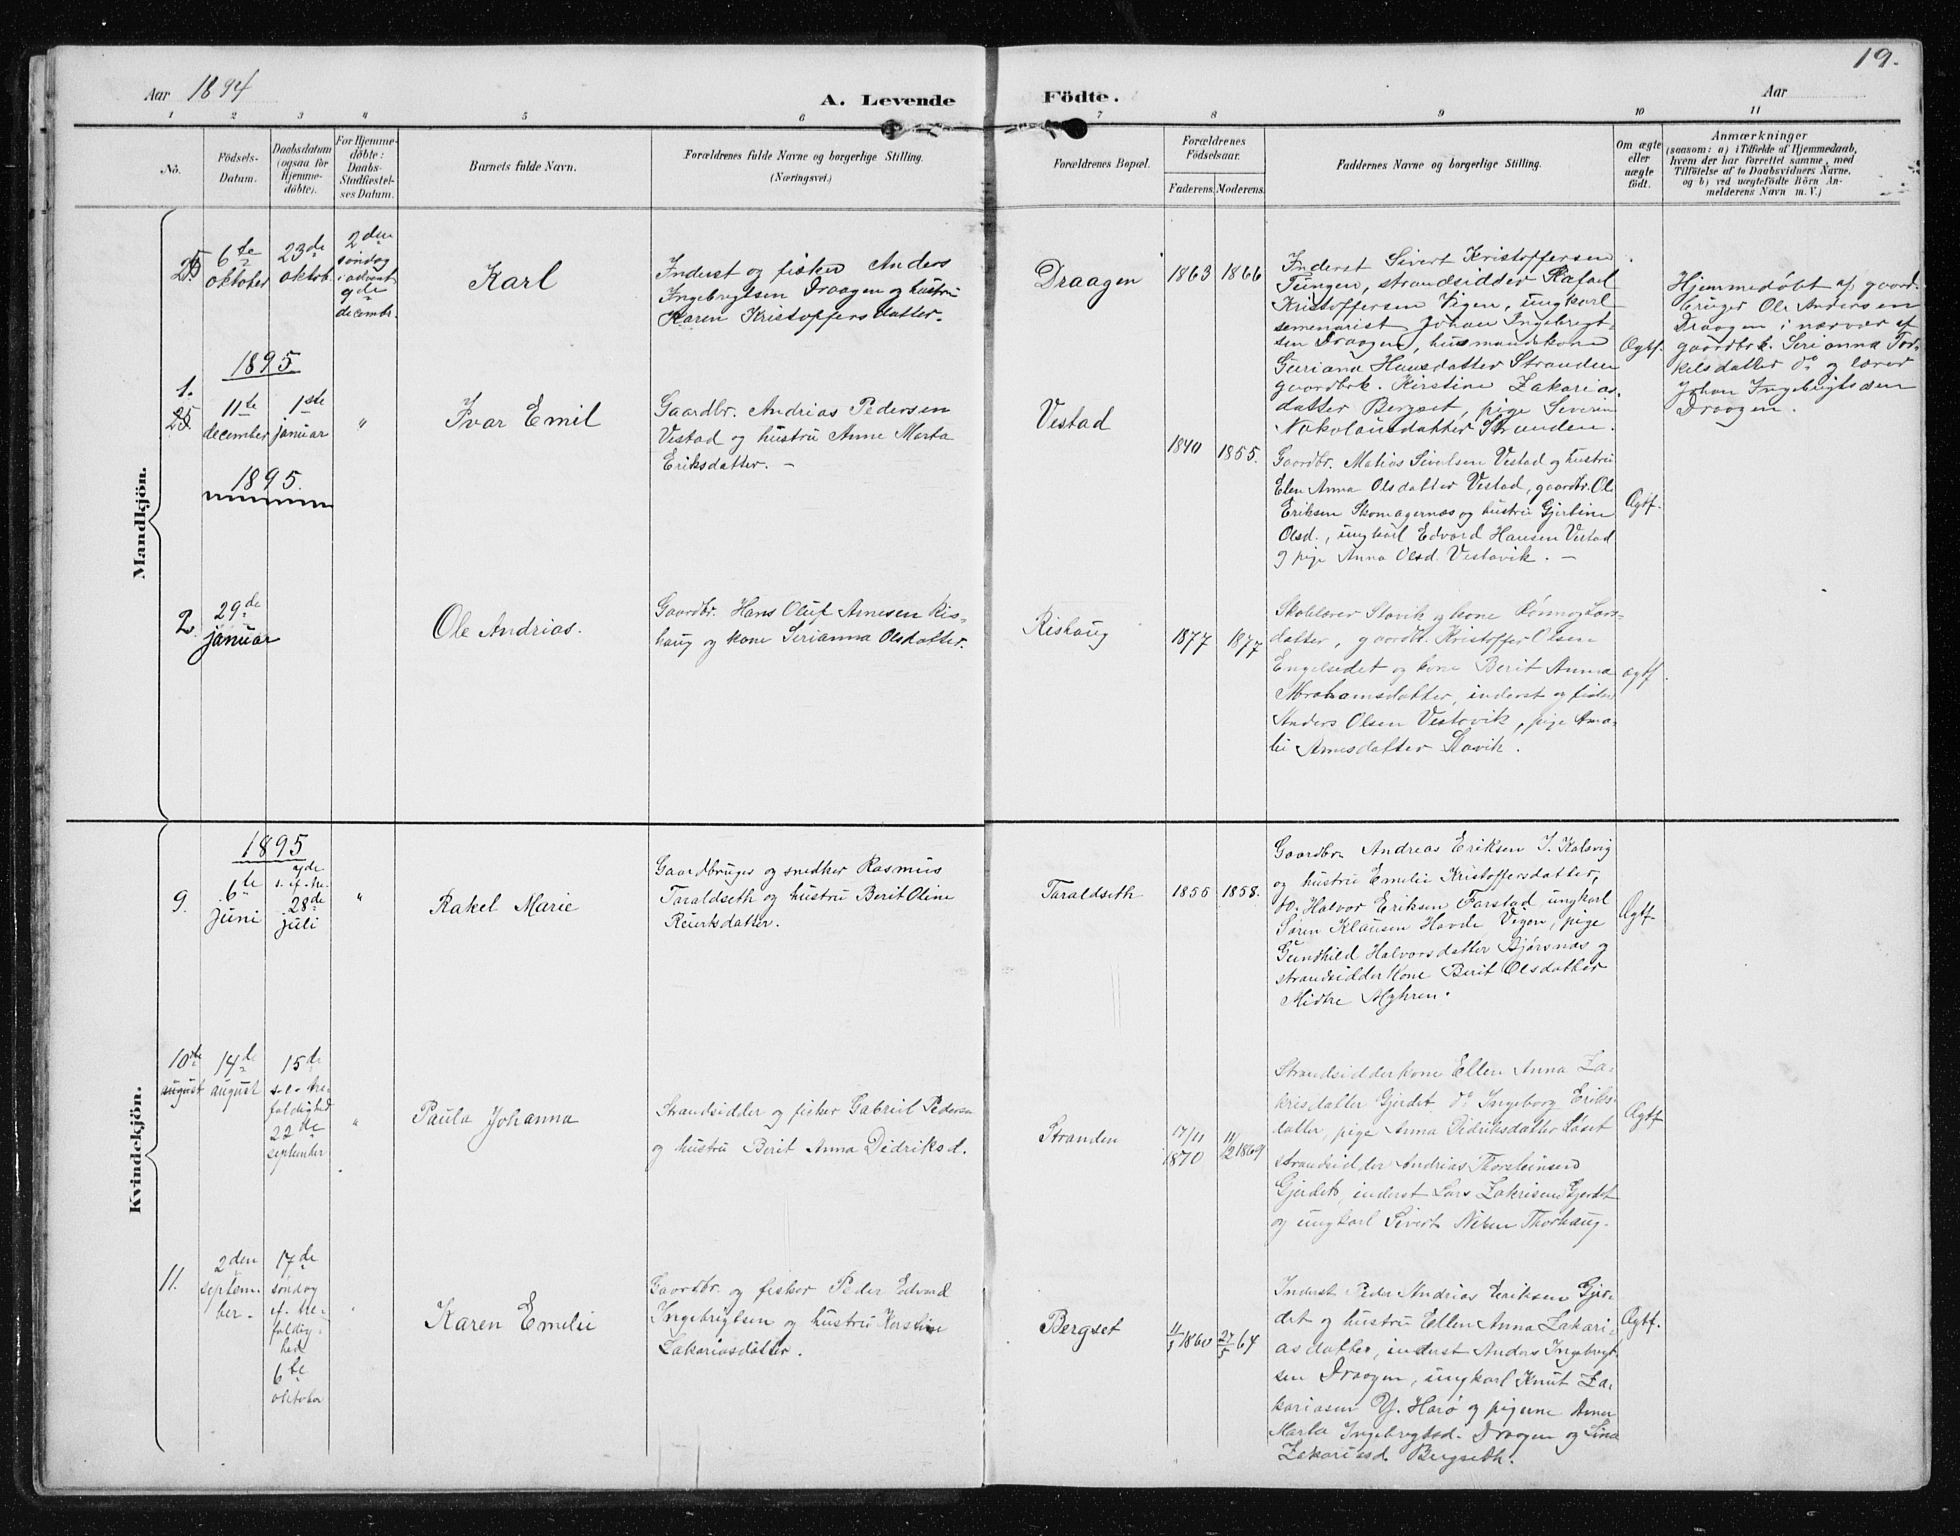 19.
Aar 1894
A. Levende Födte.
Aar
1 2 3 4 5 6 7 8 9 10 11
No.
Födsels-Datum.
Daabsdatum (ogsaa for Hjemmedöbte).
For Hjemmedöbte: Daabs-Stadfæstelses Datum.
Barnets fulde Navn.
Forældrenes fulde Navne og borgerlige Stilling.
(Næringsvei.)
Forældrenes Bopæl.
Forældrenes Födselsaar.
Faderens. Moderens.
Faddernes Navne og borgerlige Stilling.
Om ægte eller uægte födt.
Anmærkninger
(saasom: a) i Tilfælde af Hjemmedaab,
hvem der har forrettet samme, med
Tilföielse af to Daabsvidners Navne,
og b) ved uægtefödte Börn An-
melderens Navn m. V.)
Mandkjön.
25
6te oktober
23de oktob.
2den søndag i advent 9de decembr.
Karl
Inderst og fisker Anders
Ingebrigtsen Draagen og hustru
Karen Kristoffersdatter.
Draagen
1863 1866
Inderst Sivert Kristoffersen
Tungen, strandsidder Rafael
Kristoffersen Vigen, ungkarl
semenarist Johan Ingebrigt-
sen Draagen, husmandskone
Guriana Hansdatter Stranden
gaardbrk. Kirstine Zakarias-
datter Bergset, pige Severine
Nikolausdatter Stranden.
Ægtf.
Hjemmedøbt af gaard-
bruger Ole Andersen
Draagen i nærvær af
gaardbrk. Serianna Tor-
kelsdatter do og lærer
Johan Ingebrigtsen
Draagen.
1895
1.
25
11te december
1ste januar
"
Ivar Emil
Gaardbr. Andrias Pedersen
Vestad og hustru Anne Marta
Eriksdatter. —
Vestad
1840 1855.
Gaardbr. Matias Sivertsen Vestad og hustru
Elen Anna Olsdatter Vestad, gaardbr. Ole
Eriksen Skomagernæs og hustru Gjertine
Olsd., ungkarl Edvard Hansen Vestad
og pige Anna Olsd. Vestavik. —
Ægtf.
1895.
2.
29de januar
Ole Andrias.
Gaardbr. Hans Oluf Arnesen Ris-
haug og kone Serianna Olsdatter.
Rishaug
1877 1877
Skolelærer Slavik og kone Rønnog Lars-
datter, gaardbr. Kristoffer Olsen
Engelsidet og kone Berit Anna
Abrahamsdatter, inderst og fisker
Anders Olsen Vestavik, pige Ama-
lie Arnesdatter Slavik.
ægtf.
Kvindekjön.
1895
9.
6te Juni
7de s. ef. tre. 28de juli
"
Rakel Marie
Gaardbruger og snedker Rasmus
Taraldseth og hustru Berit Oline
Reiertsdatter.
Taraldseth
1856 1858.
Gaardbr. Andreas Eriksen I. Kalsvig
og hustru Emelie Kristoffersdatter,
do. Halvor Eriksen Farstad, ungkarl
Søren Klausen Havde Vigen, pige
Gundhild Halvorsdatter Bjørsnæs og
strandsidderkone Berit Olsdatter
Midtre Myhren.
Ægtf.
10de august
14de august
15de s. e. trefoldighed 22de september
"
Paula Johanna
Strandsidder og fisker Gabriel Pedersen
og hustru Berit Anna Didriksd.
Stranden
17/11 1870
11/12 1869
Strandsidderkone Ellen Anna Za-
krisdatter Gjerdet do Ingeborg Eriks-
datter, pige Anna Didriksdatter Løset
strandsidder Andrias Thorsteinsen
Gjerdet, inderst Lars Zakrisen Gjerdet
og ungkarl Sivert Nilsen Thorhaug.
Ægtf
11.
2den september.
17de søndag ef. trefoldighed 6te oktober
"
Karen Emelie
Gaardbr. og fisker Peder Edvard
Ingebrigtsen og hustru Kerstine
Zakariasdatter.
Bergset
1860
27/5 64
Inderst Peder Andrias Eriksen Gjer-
det og hustru Ellen Anna Zakari-
asdatter, inderst Anders Ingebrigt-
sen Draagen, ungkarl Knut Za-
kariasen Y. Harø og pigerne Anne
Marta Ingebrigtsd. Draagen og Sina
Zakariasd. Bergseth.
Ægtf.